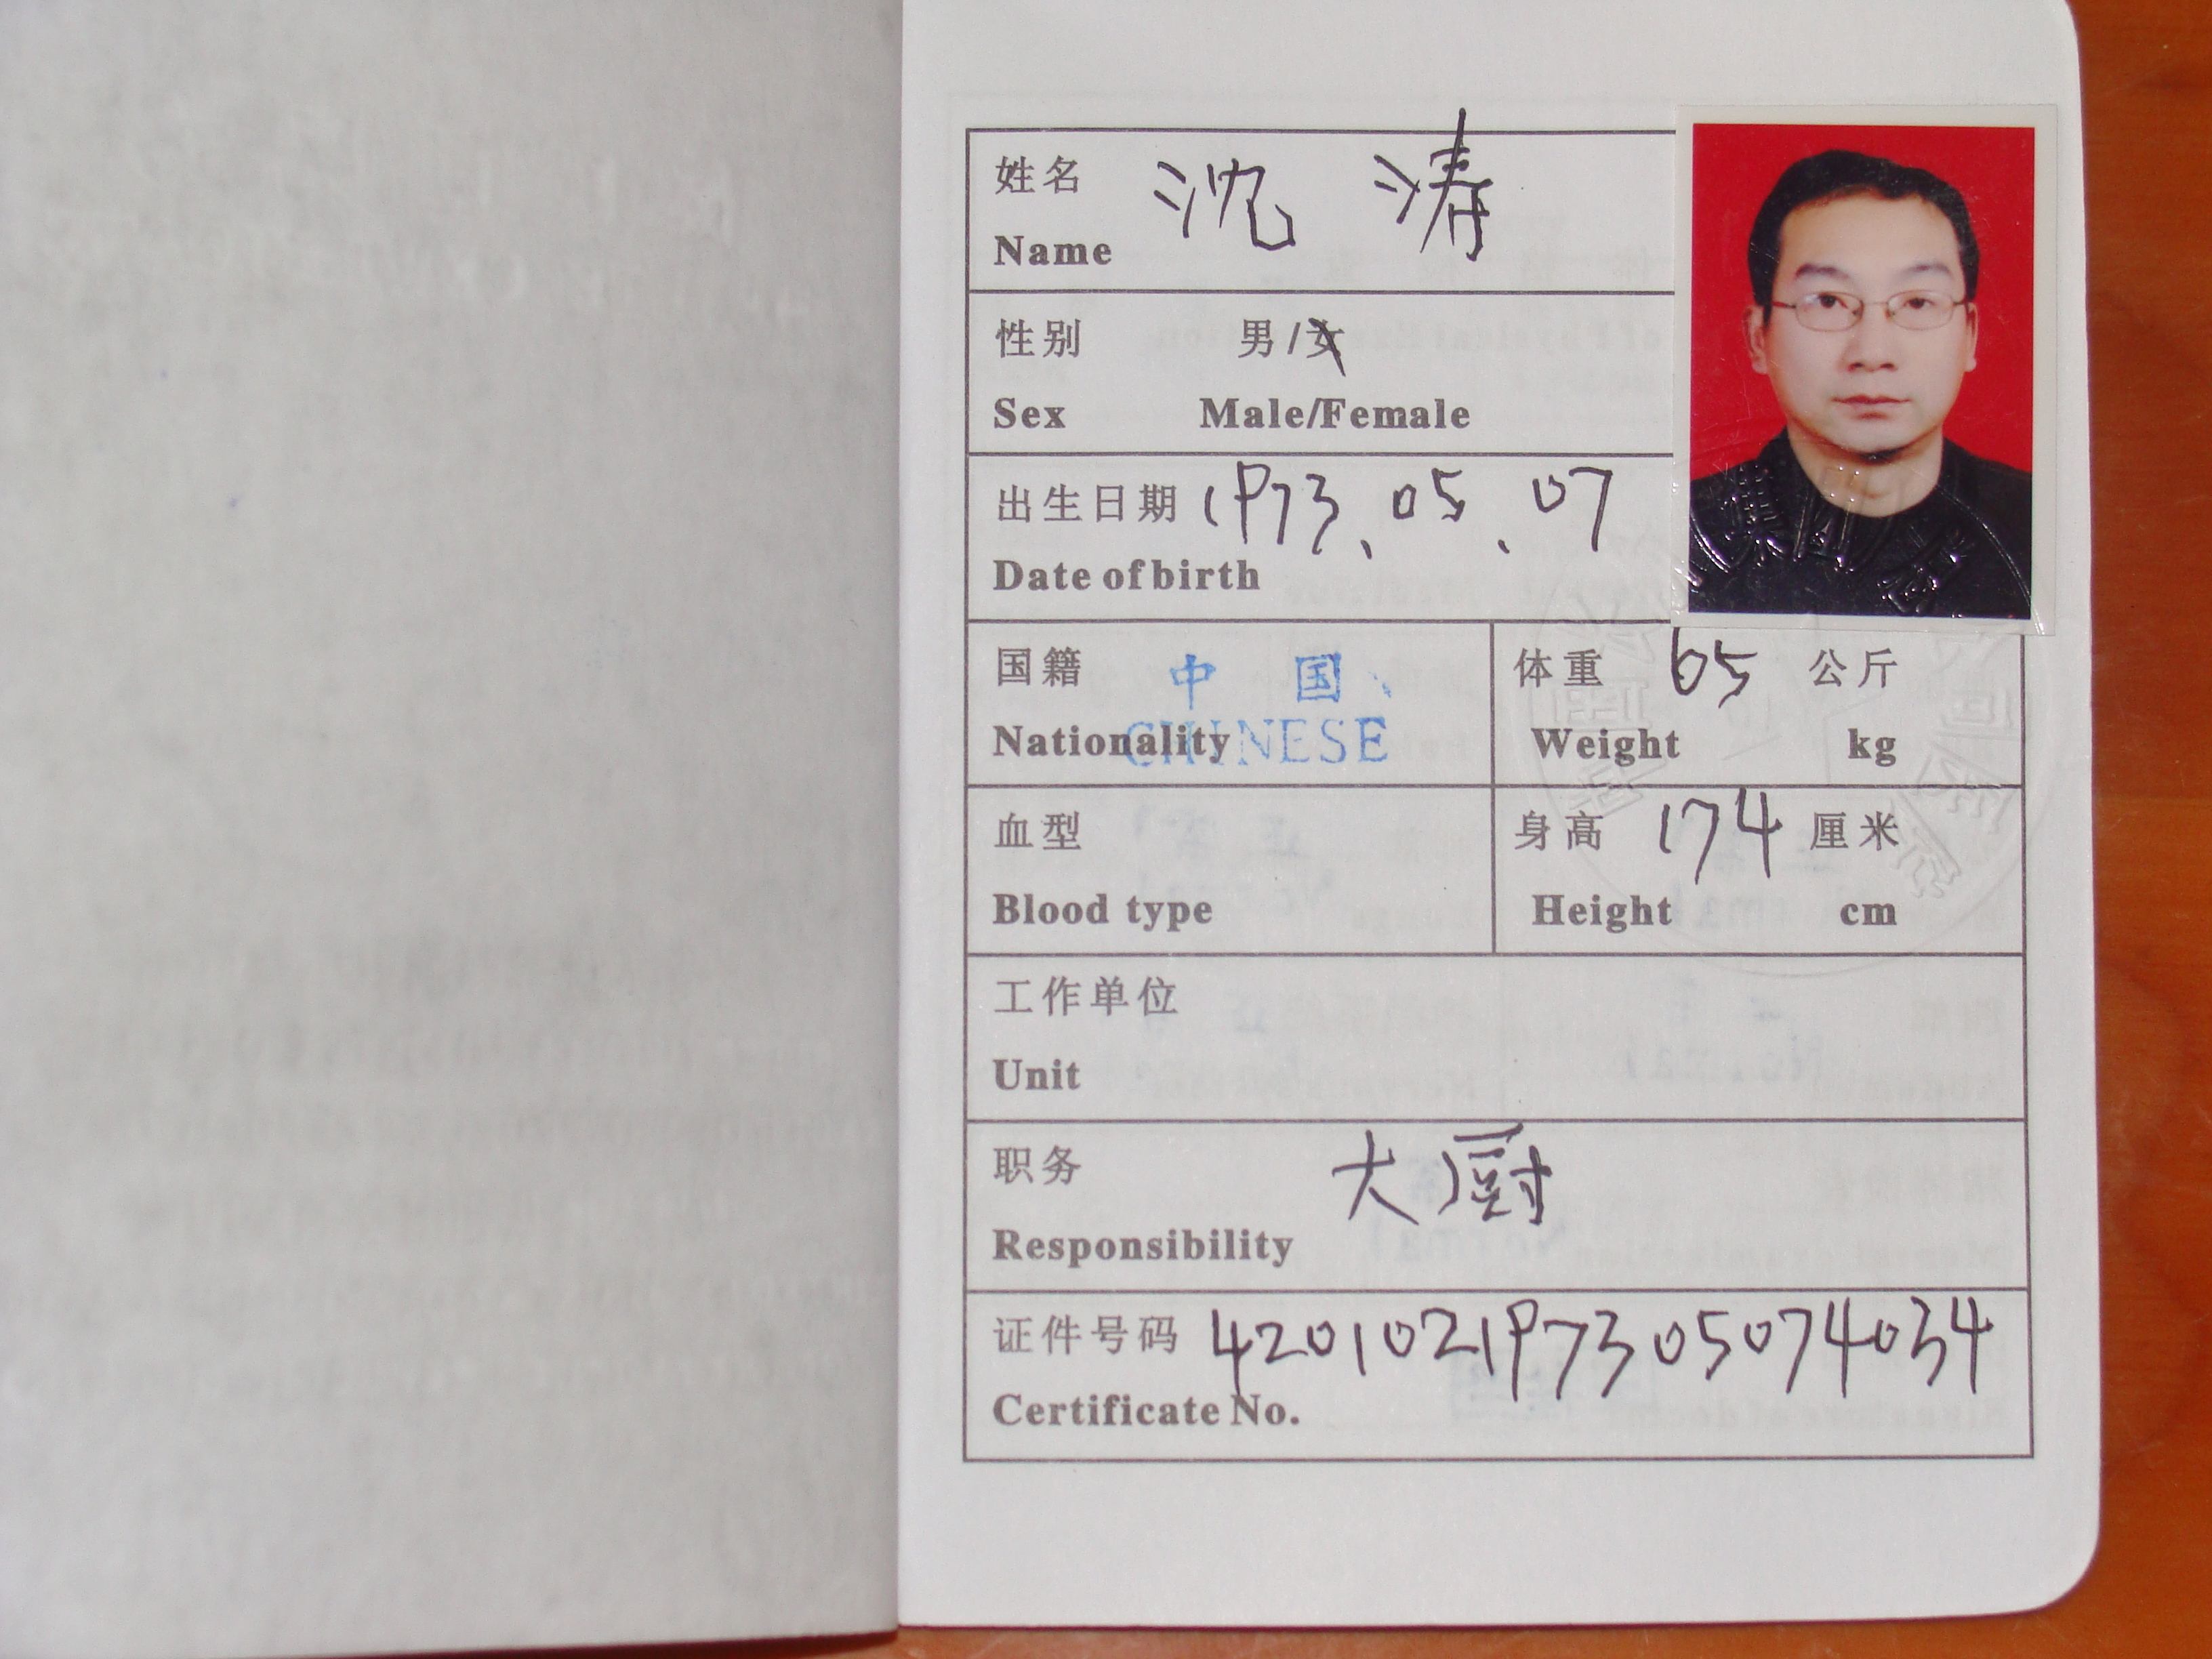 姓名 沈 涛
Name
性别 男/女
Sex Male/Female
出生日期 1973.05.07
Date of birth
国籍 中 国 体重 65 公斤
Nationality CHINESE Weight kg
血型 身高 174 厘米
Blood type Height cm
工作单位
Unit
职务 大厨
Responsibility
证件号码 420102197305074034
Certificate No.